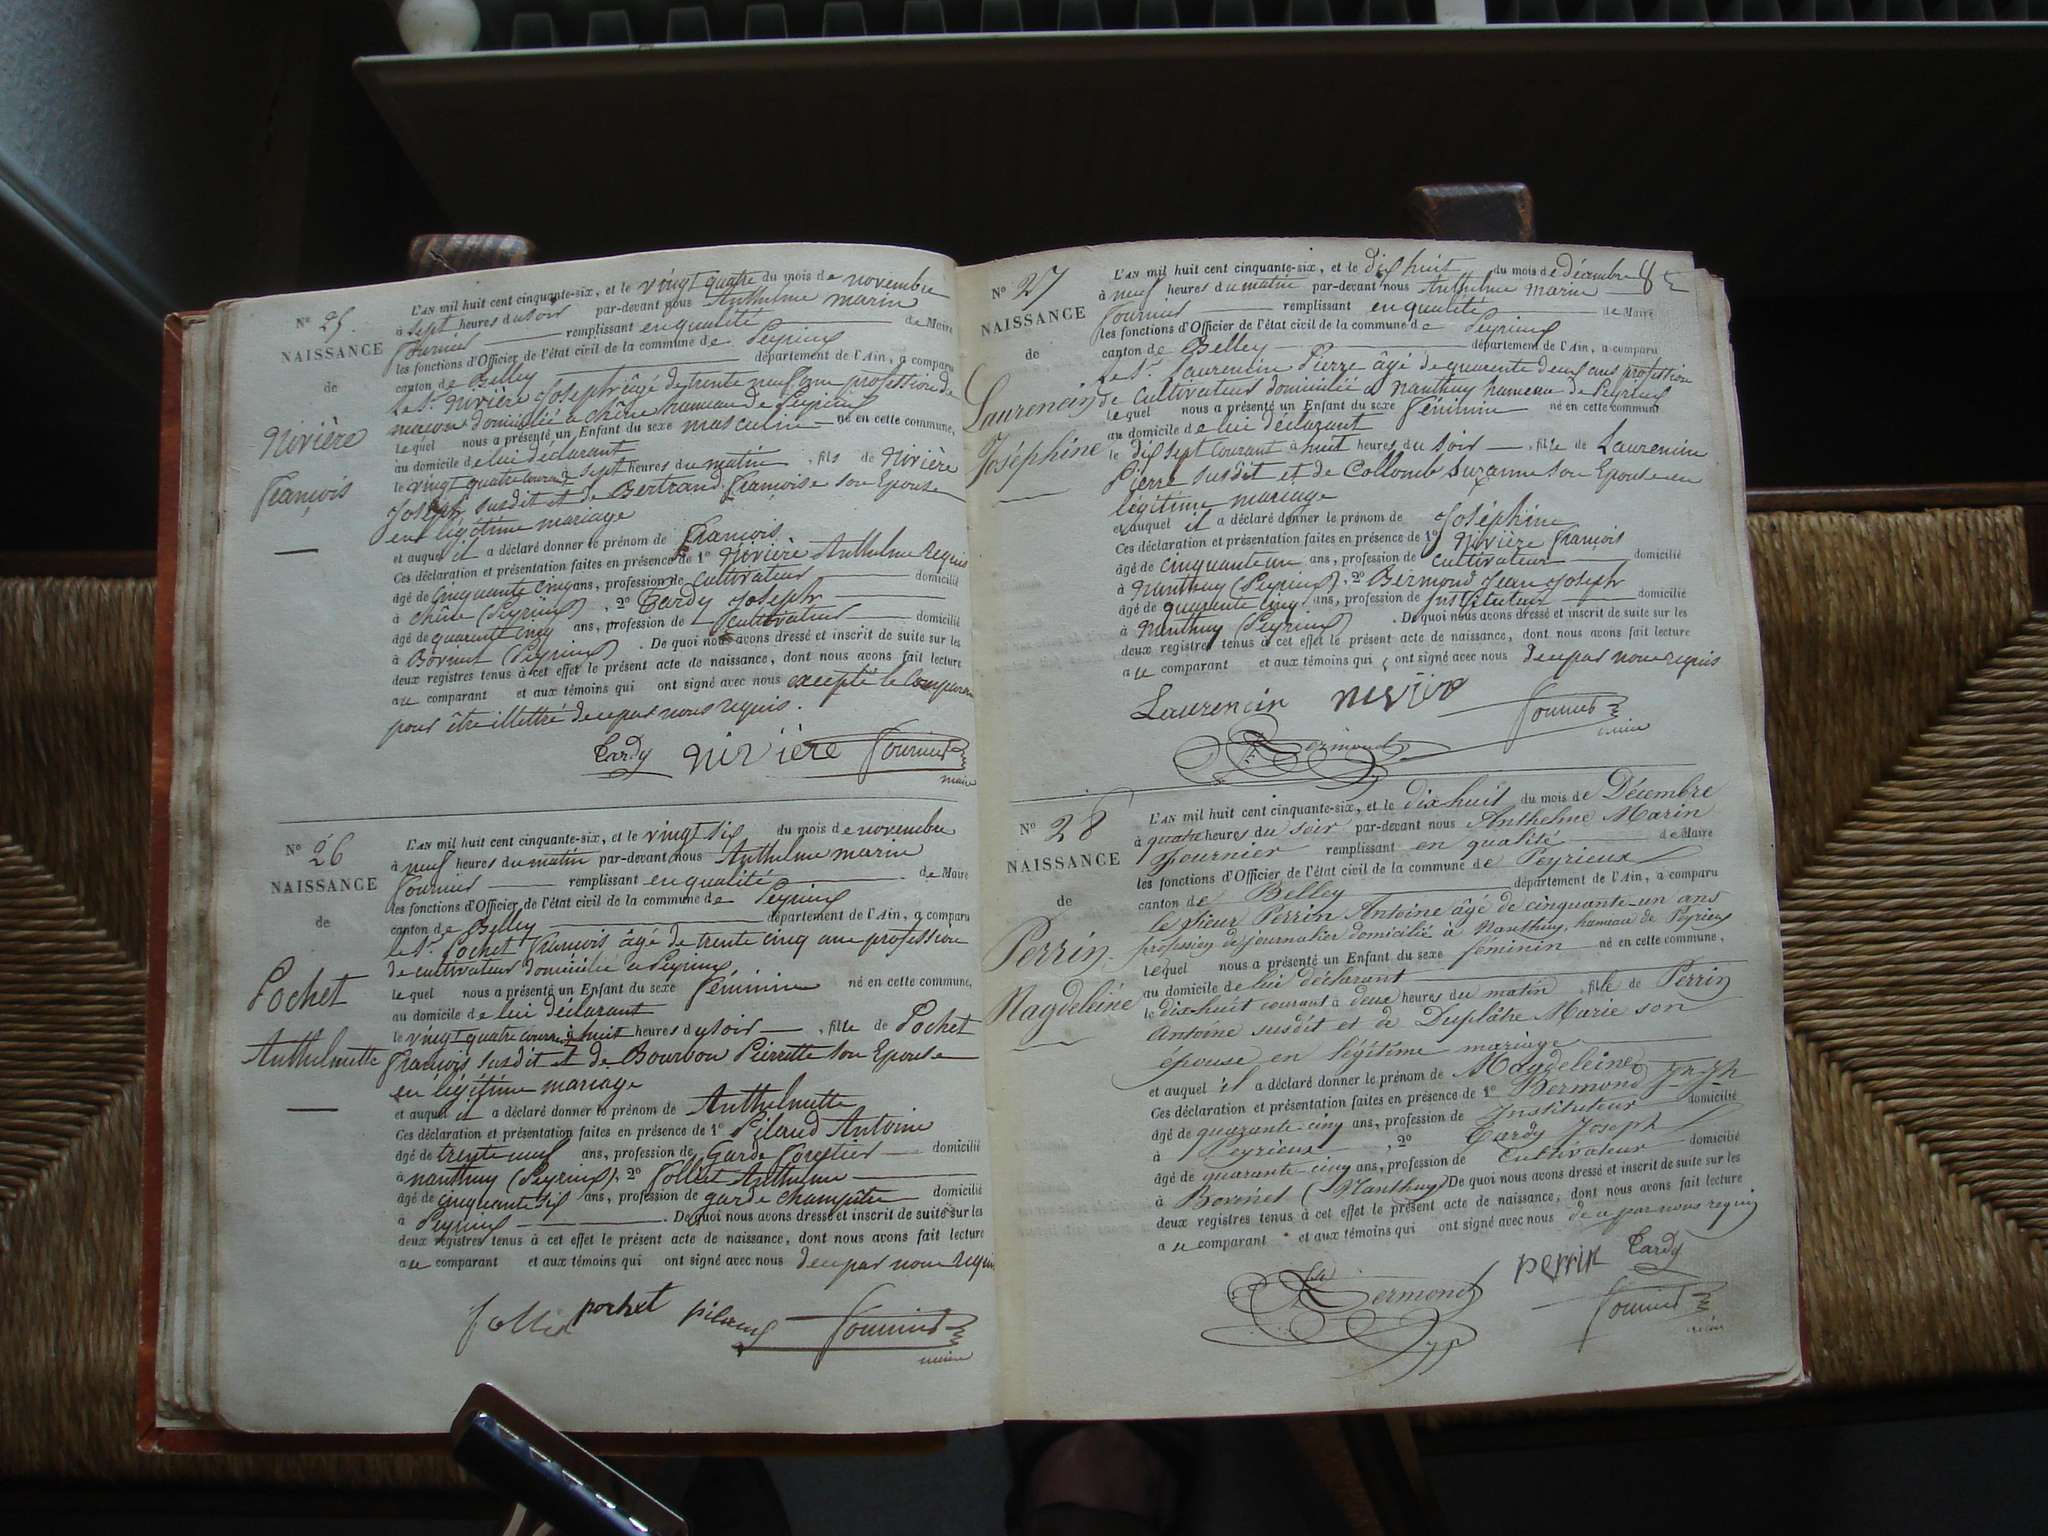 N° 25.
NAISSANCE
de
Nivière
François
L'AN mil huit cent cinquante-six, et le vingt quatre du mois de novembre
à sept heures du soir par-devant nous Anthelme marin
fournier remplissant en qualité de Maire
les fonctions d'Officier de l'état civil de la commune de Peyrieux
canton de Belley département de l'Ain, a comparu
le Sr. Nivière Joseph âgé de trente neuf ans profession de
maçon domicilié à chêne hameau de Peyrieux
lequel nous a présenté un Enfant du sexe masculin né en cette commune,
au domicile de lui déclarant
le vingt quatre courant à sept heures du matin , fils de Nivière
Joseph susdit et de Bertrand françoise son Epouse
en légitime mariage
et auquel il a déclaré donner le prénom de François
Ces déclaration et présentation faites en présence de 1° Nivière Anthelme Requis
âgé de cinquante cinq ans, profession de cultivateur domicilié
à chêne (Peyrieux) , 2° Tardy Joseph
âgé de quarante cinq ans, profession de cultivateur domicilié
à Bovinet (Peyrieux) . De quoi nous avons dressé et inscrit de suite sur les
deux registres tenus à cet effet le présent acte de naissance, dont nous avons fait lecture
au comparant et aux témoins qui ont signé avec nous excepté le comparant
pour être illettré de ce par nous requis.
Tardy Nivière fournier
maire
N° 26
NAISSANCE
de
Pochet
Anthelmette
L'AN mil huit cent cinquante-six, et le vingt six du mois de novembre
à neuf heures du matin par-devant nous Anthelme marin
fournier remplissant en qualité de Maire
les fonctions d'Officier de l'état civil de la commune de Peyrieux
canton de Belley département de l'Ain, a comparu
le Sr. Pochet François âgé de trente cinq ans profession
de cultivateur domicilié à Peyrieux
lequel nous a présenté un Enfant du sexe féminin né en cette commune,
au domicile de lui déclarant
le vingt quatre courant à huit heures du soir , fille de Pochet
françois susdit et de Bourbon Pierrette son Epouse
en légitime mariage
et auquel il a déclaré donner le prénom de Anthelmette
Ces déclaration et présentation faites en présence de 1° Pilaud Antoine
âgé de trente neuf ans, profession de Garde forestier domicilié
à nanthuy (Peyrieux), 2° folliet Anthelme
âgé de cinquante six ans, profession de garde champêtre domicilié
à Peyrieux . De quoi nous avons dressé et inscrit de suite sur les
deux registres tenus à cet effet le présent acte de naissance, dont nous avons fait lecture
au comparant et aux témoins qui ont signé avec nous de ce par nous requis
pochet fournier
maire
85
N° 27
NAISSANCE
de
Laurencin
Joséphine
L'AN mil huit cent cinquante-six, et le dix huit du mois de décembre
à neuf heures du matin par-devant nous Anthelme marin
fournier remplissant en qualité de Maire
les fonctions d'Officier de l'état civil de la commune de Peyrieux
canton de Belley département de l'Ain, a comparu
le Sr. Laurencin Pierre âgé de quarante deux ans profession
de cultivateur domicilié à nanthuy hameau de Peyrieux
lequel nous a présenté un Enfant du sexe féminin né en cette commune
au domicile de lui déclarant
le dix sept courant à huit heures du soir , fille de Laurencin
Pierre susdit et de Collomb Suzanne son Epouse en
légitime mariage
et auquel il a déclaré donner le prénom de Joséphine
Ces déclaration et présentation faites en présence de 1° Nivière françois
âgé de cinquante un ans, profession de cultivateur domicilié
à Nanthuy (Peyrieux), 2° Bermond Jean Joseph
âgé de quarante cinq ans, profession de Instituteur domicilié
à Nanthuy (Peyrieux) . De quoi nous avons dressé et inscrit de suite sur les
deux registres tenus à cet effet le présent acte de naissance, dont nous avons fait lecture
au comparant et aux témoins qui ont signé avec nous de ce par nous requis
Laurencin fournier
maire
Bermond
N° 28
NAISSANCE
de
Perrin
Magdeleine
L'AN mil huit cent cinquante-six, et le dix huit du mois de Décembre
à quatre heures du soir par-devant nous Anthelme Marin
Fournier remplissant en qualité de Maire
les fonctions d'Officier de l'état civil de la commune de Peyrieux
canton de Belley département de l'Ain, a comparu
le sieur Perrin Antoine âgé de cinquante-un ans
profession de journalier domicilié à Nanthuy, hameau de Peyrieux
lequel nous a présenté un Enfant du sexe féminin né en cette commune,
au domicile de lui déclarant
le dix-huit courant à deux heures du matin , fille de Perrin
Antoine susdit et de Duplâtre Marie son
épouse en légitime mariage
et auquel il a déclaré donner le prénom de Magdeleine
Ces déclaration et présentation faites en présence de 1° Bermond Jn-Jh
âgé de quarante-cinq ans, profession de Instituteur domicilié
à Peyrieux , 2° Tardy Joseph
âgé de quarante-cinq ans, profession de Cultivateur domicilié
à Bovinet (Nanthuy) De quoi nous avons dressé et inscrit de suite sur les
deux registres tenus à cet effet le présent acte de naissance, dont nous avons fait lecture
au comparant et aux témoins qui ont signé avec nous de ce par nous requis
Bermond perrin Tardy
fournier
maire